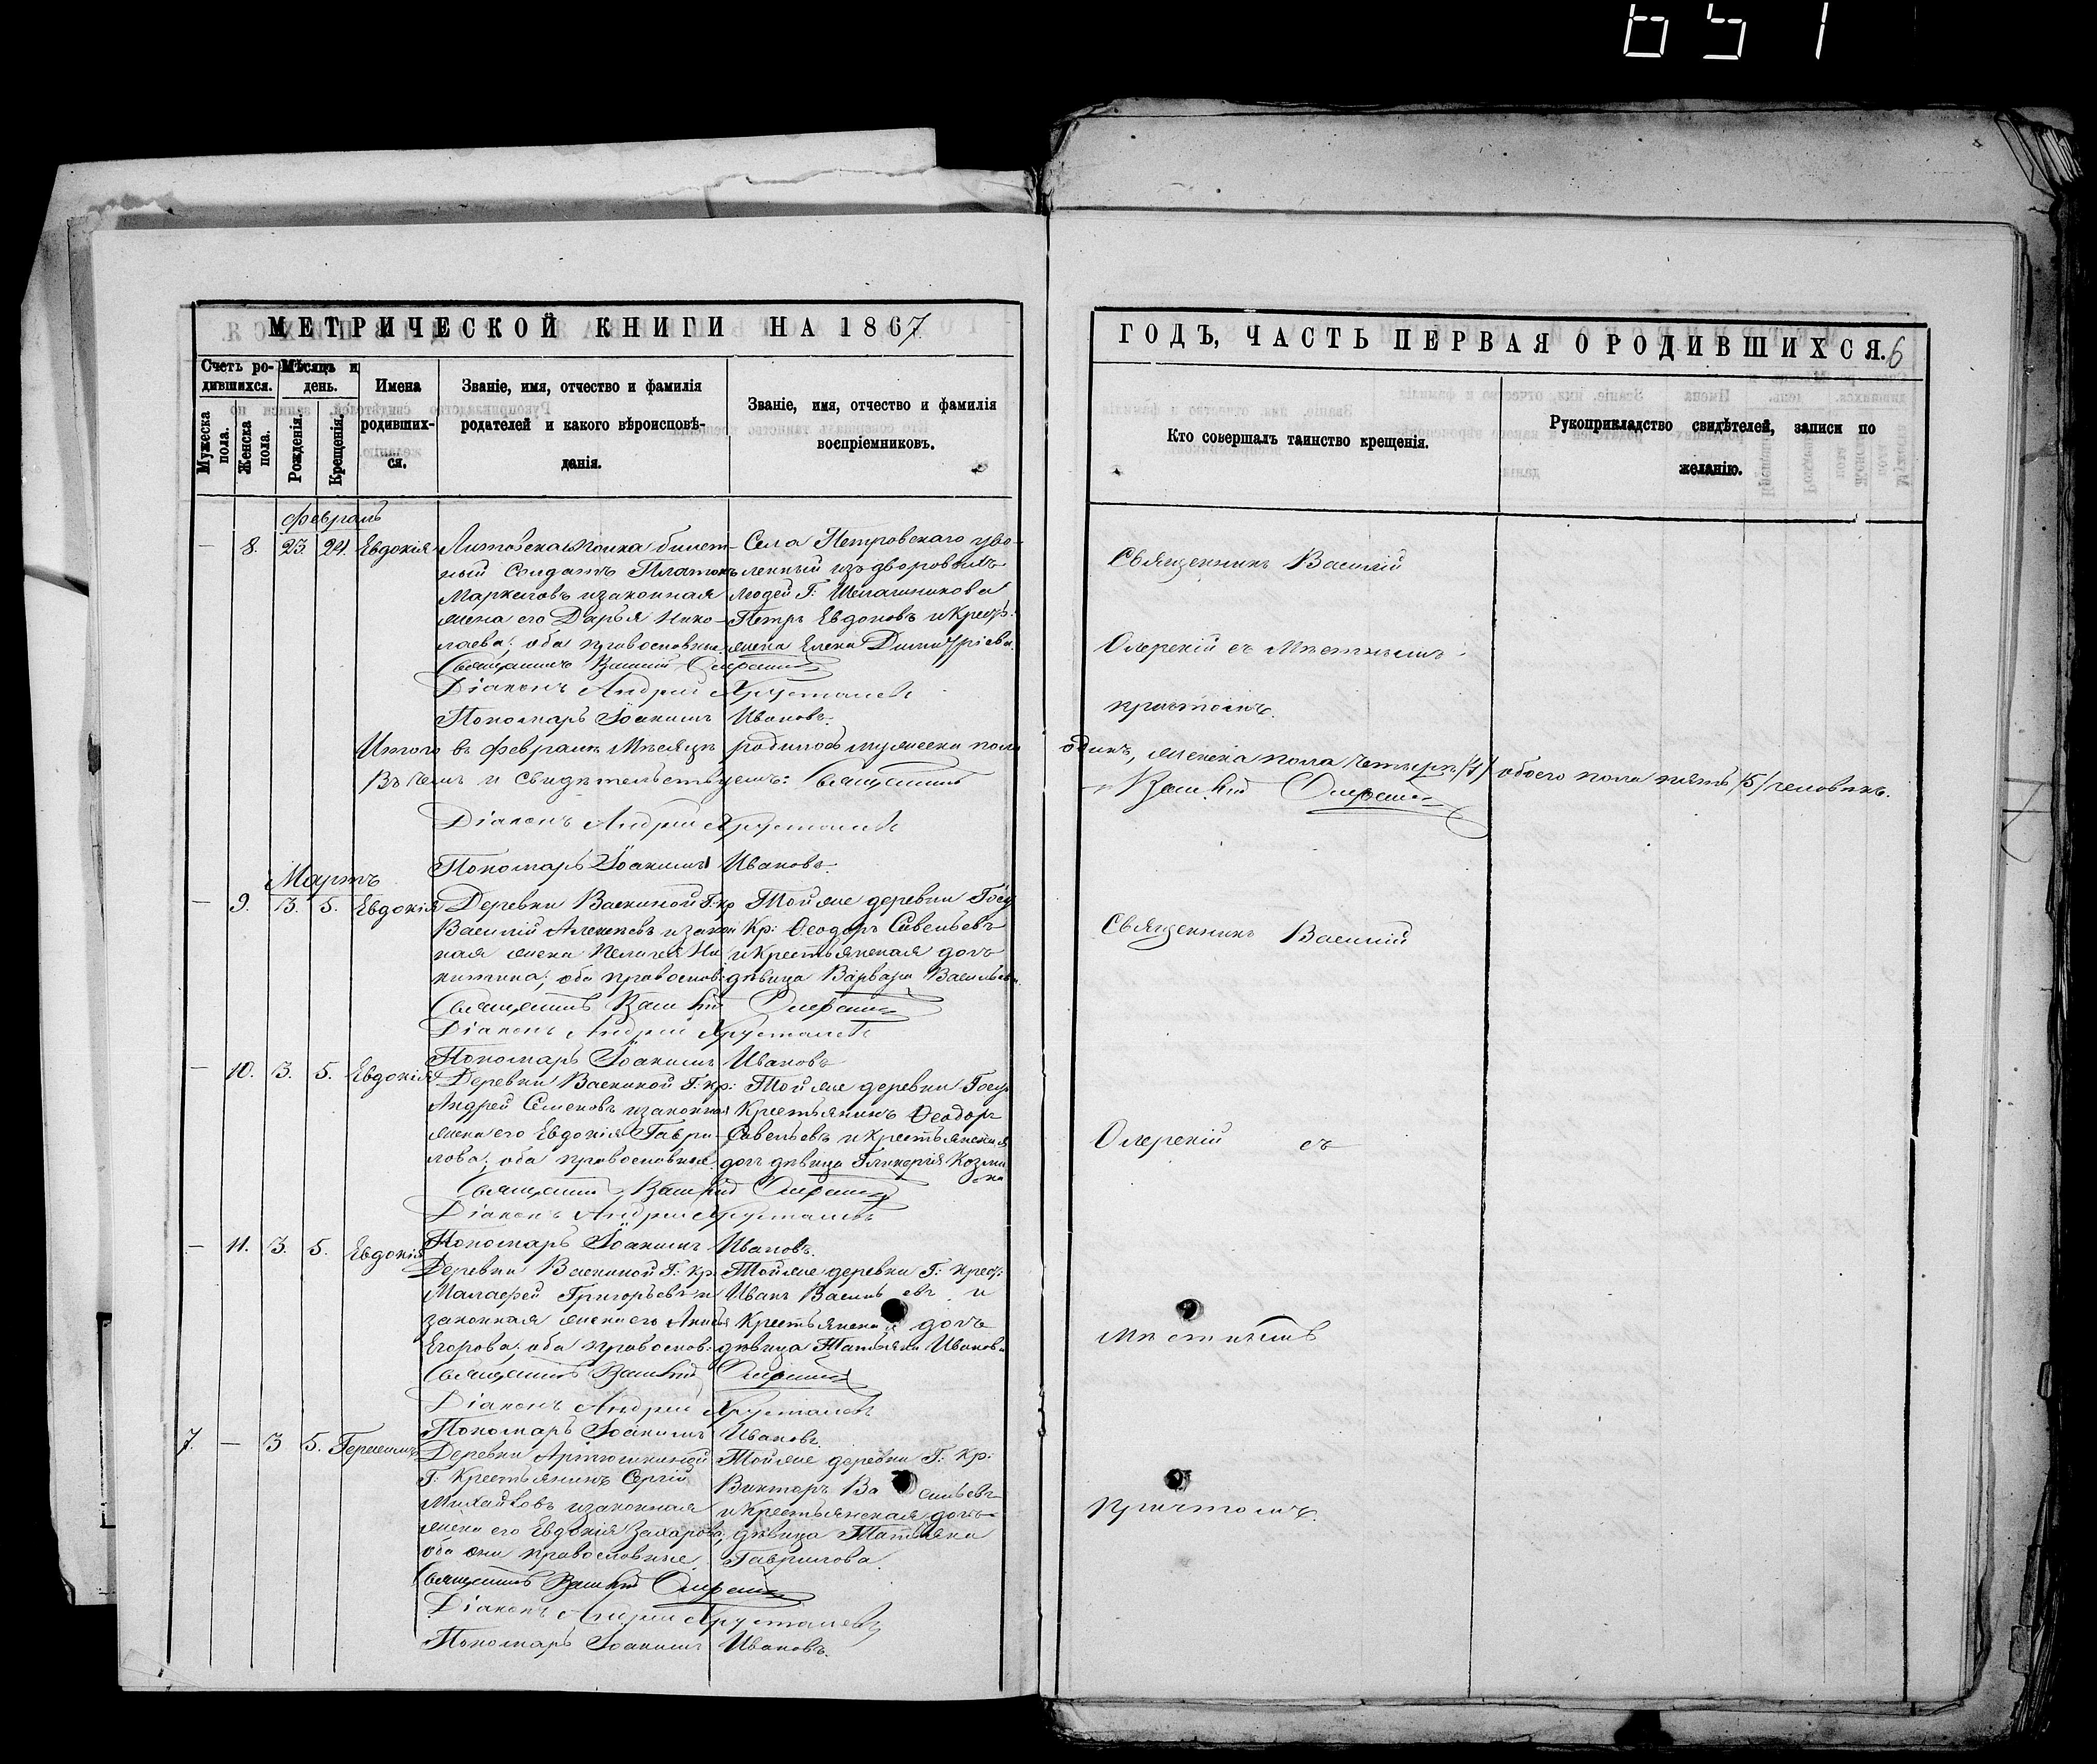 651
МЕТРИЧЕСКОЙ КНИГИ НА 1867
Счетъ ро-
дившихся.
Мѣсяцъ и
день.
Мужеска
пола.
Женска
пола.
Рожденія.
Крещенія.
Имена
родивших-
ся.
Званіе, имя, отчество и фамилія
родителей и какого вѣроисповѣ-
данія.
Званіе, имя, отчество и фамилія
воспріемниковъ.
Февраль
— 8. 23. 24. Евдокія
Литовска полка билет-
ный Солдатъ Платонъ
Маркеловъ и законная
жена его Дарья Нико-
лаева; оба православны.
Села Петровскаго уво-
ленный изъ дворовыхъ
людей Г: Шелашникова
Петръ Евдоковъ и Крест:
жена Елена Димитріева.
Священникъ Василій
Діаконъ Андрей Хрусталевъ
Пономарь Іоакимъ Ивановъ.
Итого въ Февралѣ Мѣсяцѣ родилось мужеска пола
Въ чемъ и свидѣтельствуемъ: Священникъ
Діаконъ Андрей Хрусталевъ
Пономарь Іоакимъ Ивановъ.
Мартъ
— 9. 3. 5. Евдокія
Деревни Васкиной Г: кр
Василій Алексѣевъ и закон
ная жена Пелагея Ни
китина; оба православ:
Той же деревни Госу
Кр: Ѳеодоръ Савельевъ
и Крестьянская дочь
дѣвица Варвара Васильева.
Священникъ Василій
Діаконъ Андрей Хрусталевъ
Пономарь Іоакимъ Ивановъ
— 10. 3. 5. Евдокія
Деревни Васкиной Г: кр:
Андрей Семеновъ и законная
жена его Евдокія Гаври-
лова; оба православные.
Той же деревни Госу
Крестьянинъ Ѳеодоръ
Савельевъ и крестьянская
дочь дѣвица Гликерія Козми
на
Священникъ Василій
Діаконъ Андрей Хрусталевъ
Пономарь Іоакимъ Ивановъ.
— 11. 3. 5. Евдокія
Деревни Васкиной Г: Кр:
Малафей Григорьевъ и
законная жена его Анисья
Егорова; оба православ:
Той же деревни Г: Крест:
Иванъ Василь евъ и
Крестьянска я дочь
дѣвица Татьяна Иванова
Священникъ Василій
Діаконъ Андрей Хрусталевъ
Пономарь Іоакимъ Ивановъ.
7. — 3 5. Герасимъ
Деревни Артюшкиной
Г: Крестьянинъ Сергій
Михайловъ и законная
жена его Евдокія Захарова,
оба они православные
Той же деревни Г: Кр:
Викторъ Ва сильевъ
и Крестьянская дочь
дѣвица Татьяна
Гаврилова.
Священникъ Василій
Діаконъ Андрей Хрусталевъ
Пономарь Іоакимъ Ивановъ.
ГОДЪ, ЧАСТЬ ПЕРВАЯ О РОДИВШИХСЯ. 6
Кто совершалъ таинство крещенія.
Рукоприкладство свидѣтелей, записи по
желанію.
Священникъ Василій
съ Мѣстнымъ
причтомъ.
одинъ, женска пола четыре /4/ обоего пола пять /5/ человѣкъ.
Василій
Священникъ Василій
съ
Мѣстнымъ
причтомъ.